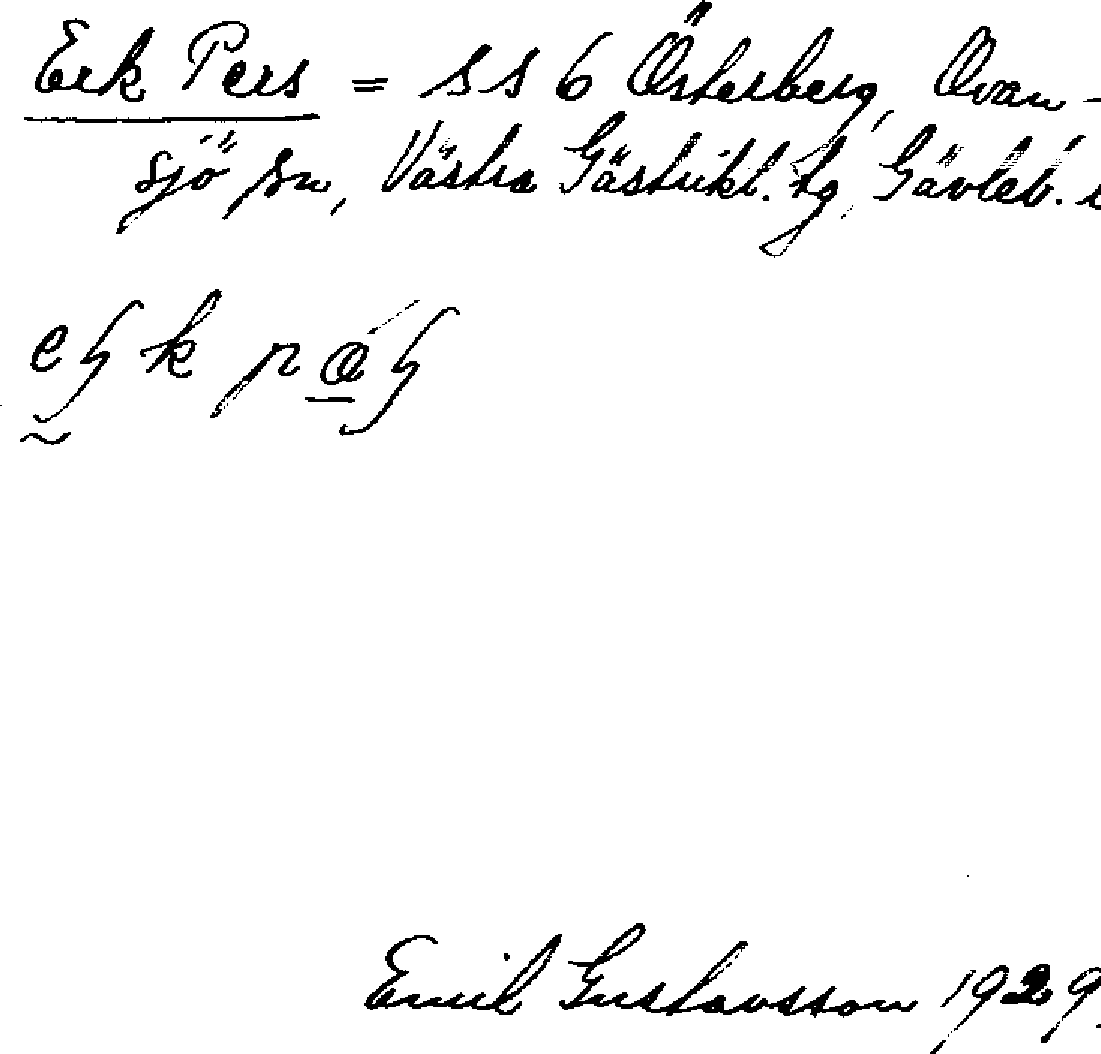 Erk Pers = s s 6 Österberg, Ovan-
sjö sn, Västra Gästrikl. tg, Gävleb.
Emil Gustavsson 1929.